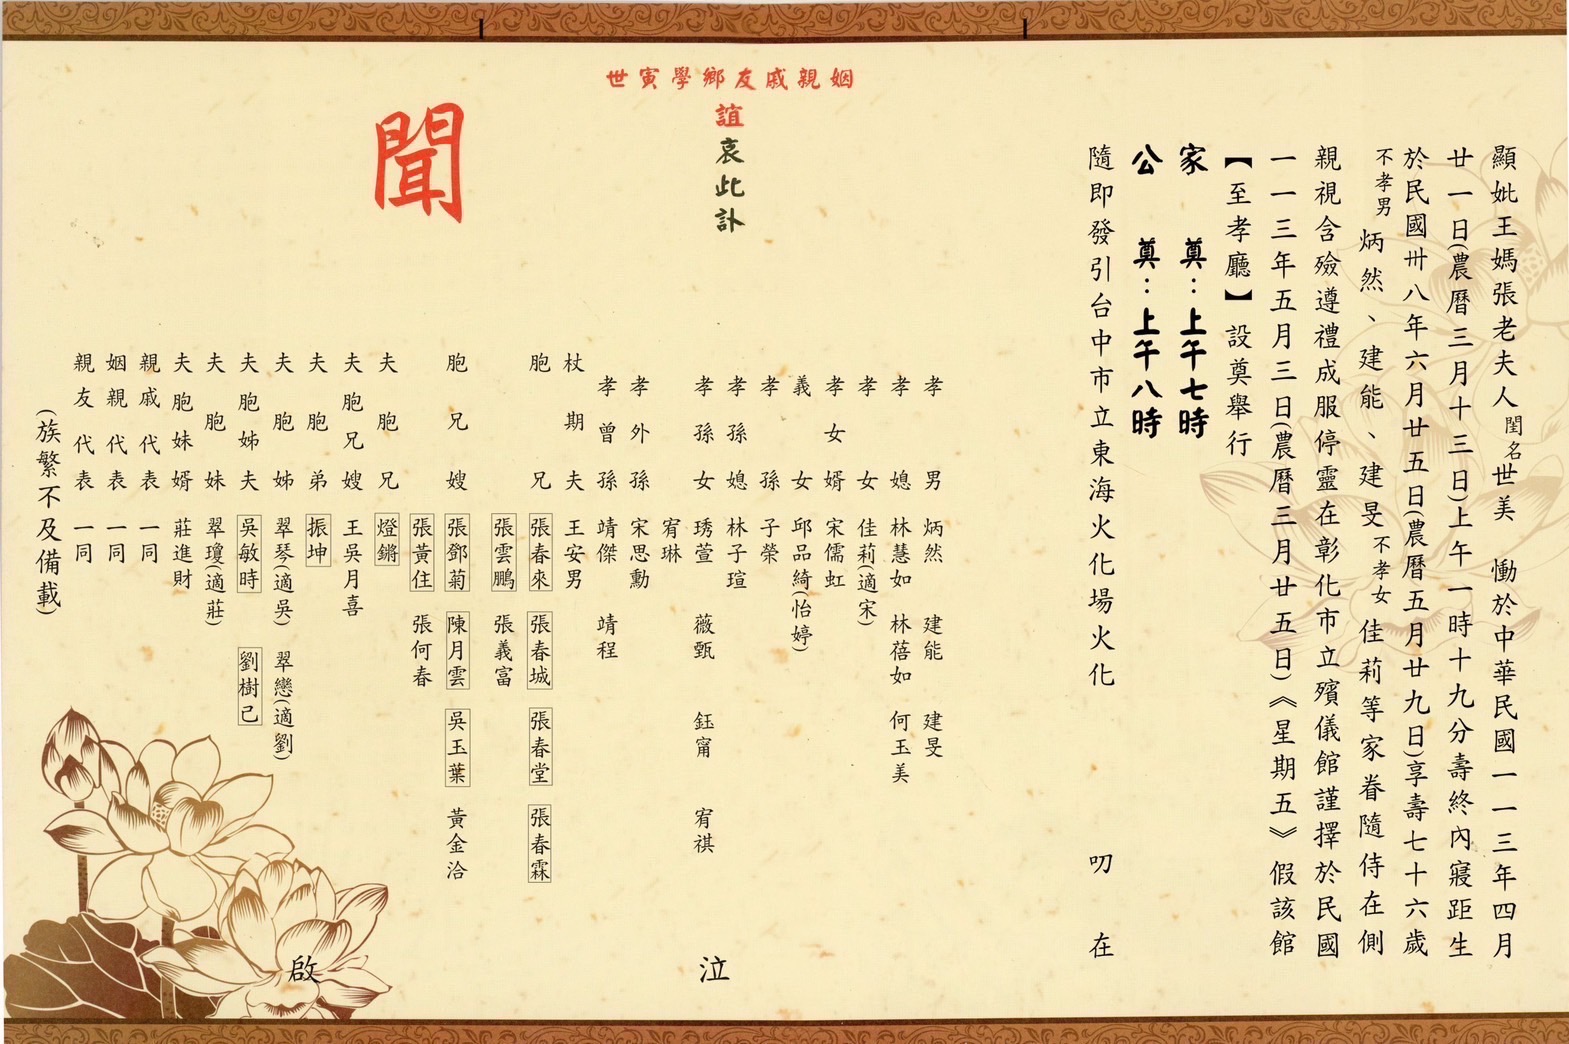 顯妣王媽張老夫人閨名世美　慟於中華民國一一三年四月
廿一日(農曆三月十三日)上午一時十九分壽終內寢距生
於民國卅八年六月廿五日(農曆五月廿九日)享壽七十六歲
不孝男炳然、建能、建旻不孝女佳莉等家眷隨侍在側
親視含殮遵禮成服停靈在彰化市立殯儀館謹擇於民國
一一三年五月三日(農曆三月廿五日)《星期五》假該館
【至孝廳】設奠舉行
家　奠：上午七時
公　奠：上午八時
隨即發引台中市立東海火化場火化　叨　在
姻親戚友鄉學寅世
誼哀此訃
聞
孝男　炳然　建能　建旻
孝媳　林慧如　林蓓如　何玉美
孝女　佳莉(適宋)
孝女婿　宋儒虹
義女　邱品綺(怡婷)
孝孫　子榮
孝孫媳　林子瑄
孝孫女　琇萱　薇甄　鈺甯　宥祺
宥琳
孝外孫　宋思勳
孝曾孫　靖傑　靖程
杖期夫　王安男
胞兄　張春來　張春城　張春堂　張春霖
張雲鵬　張義富
胞兄嫂　張鄧菊　陳月雲　吳玉葉　黃金洽
張黃住　張何春
夫胞兄　燈鏘
夫胞兄嫂　王吳月喜
夫胞弟　振坤
夫胞姊　翠琴(適吳)　翠戀(適劉)
夫胞姊夫　吳敏時　劉樹己
夫胞妹　翠瓊(適莊)
夫胞妹婿　莊進財
親戚代表　一同
姻親代表　一同
親友代表　一同
(族繁不及備載)
泣
啟